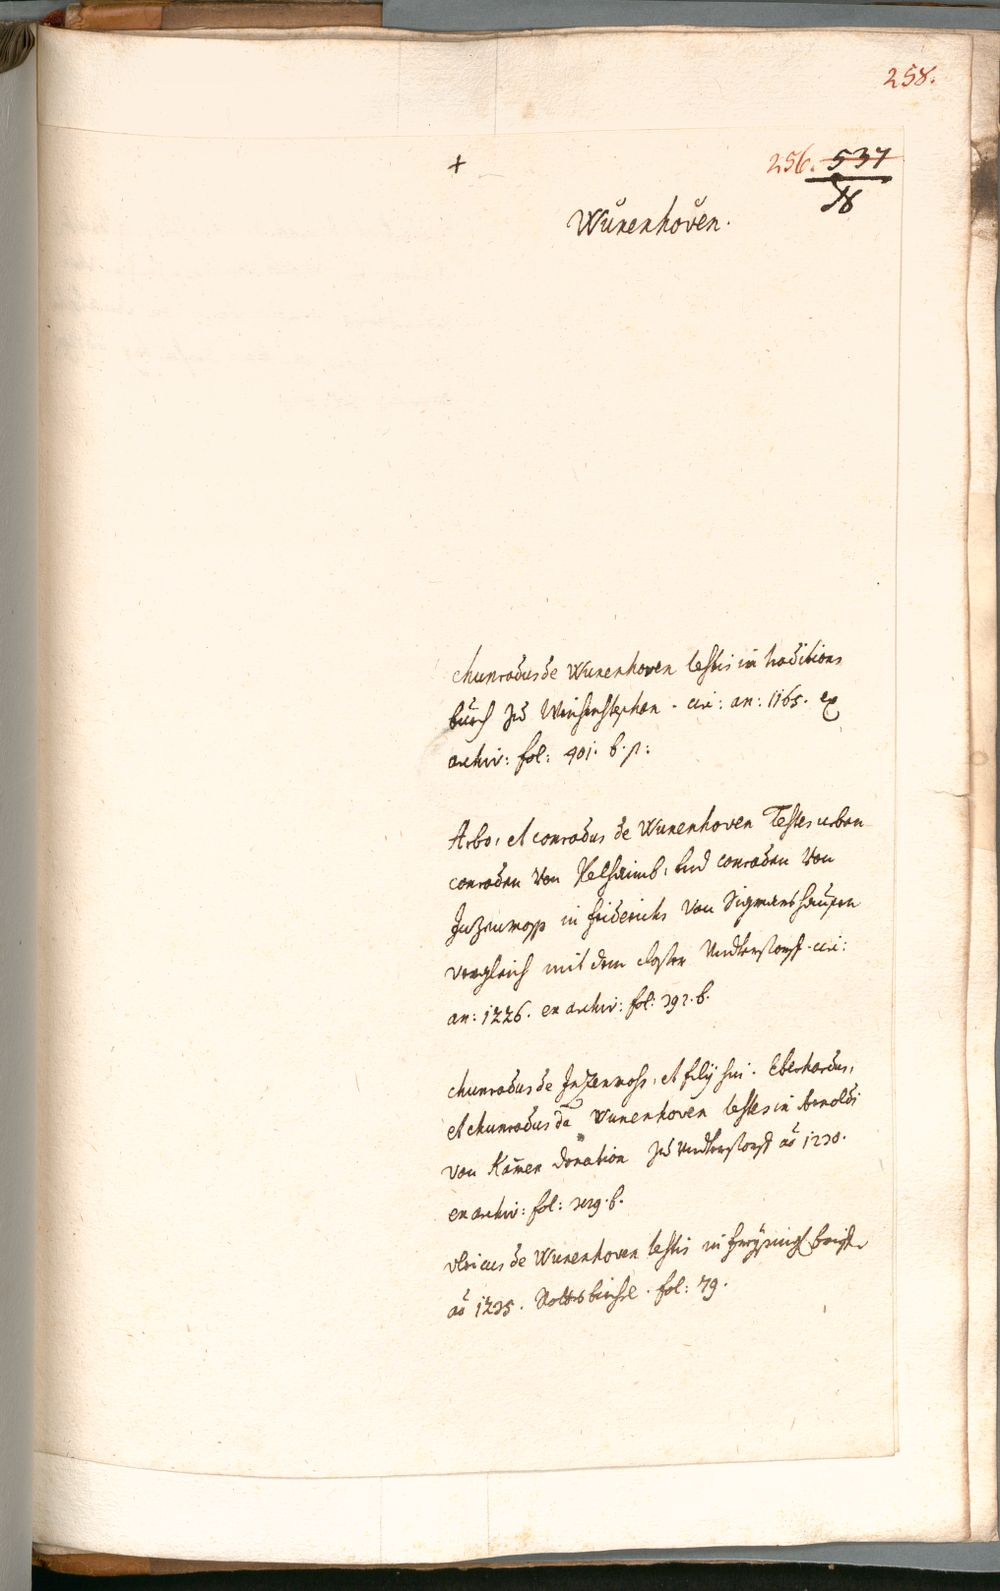 258.
+
256. 537
Wŭrenhŏven.
chunradus de Wurenhoven testis in traditions
buech zu Weihenstephan. circ: an: 1165. ex
archiv: fol: 401. b. p:
Arbo, et conradus de Wurenhoven Testes neben
conraden von Helhaimb, und conraden von
Inzenmoss in Friderichs von Sigmershausen
vergleich mit dem closter Understorf. circ:
an: 1226. ex archiv: fol: 392. b.
chunradus de Inzenmoss, et filij sui. Eberhardus,
et chunradus de Wurenhoven testes in Arnoldi
von Kamer donation zu Understorf aõ 1230.
ex archiv: fol: b.
vlricus de Wurenhoven testis in freysing: brief
aõ 1235. fol: 79.